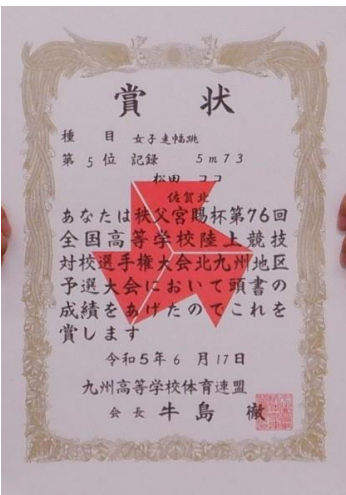 賞状
種目 女子走幅跳
第5位 記録 5m73
松田 ココ
佐賀北
あなたは秩父宮賜杯第76回
全国高等学校陸上競技
対校選手権大会北九州地区
予選大会において頭書の
成績をあげたのでこれを
賞します
令和5年6月17日
九州高等学校体育連盟
会長 牛島 徹